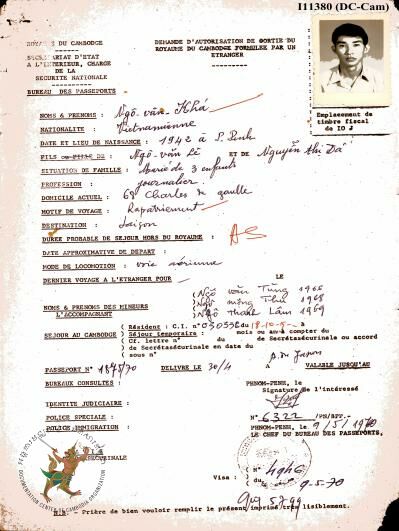 I11380 (DC-Cam)
ROYAUME DU CAMBODGE
DEMANDE D'AUTORISATION DE SORTIE DU
ROYAUME DU CAMBODGE FORMULEE PAR UN
ETRANGER
SECRETARIAT D'ETAT
A L'INTERIEUR, CHARGE
DE LA
SECURITE NATIONALE
BUREAU DES PASSEPORTS
Emplacement de
timbre fiscal
de 10 J
NOMS & PRENOMS : Ngô văn Khá
NATIONALITE : Vietnamienne
DATE ET LIEU DE NAISSANCE : 1942 à P. Penh
FILS OU FILLE DE : Ngô văn Lê ET DE Nguyễn thị Da
SITUATION DE FAMILLE : Marié de 3 enfants
PROFESSION : journalier
DOMICILE ACTUEL : 68 Charles de gaulle
MOTIF DE VOYAGE : Rapatriement
DESTINATION : Saigon
DUREE PROBABLE DE SEJOUR HORS DU ROYAUME : AS
DATE APPROXIMATIVE DE DEPART :
MODE DE LOCOMOTION : voie aérienne
DERNIER VOYAGE A L'ETRANGER POUR LE
NOMS & PRENOMS DES MINEURS
L'ACCOMPAGNANT
( Ngô văn Tùng 1966
( Ngô mông Thu 1968
( Ngô Thanh Lâm 1969
SEJOUR AU CAMBODGE
( Résident : C.I. n° du
( Séjour temporaire : mois ou an à compter du
( Cf. lettre n° du de Secrétasécurinale ou accord
de Secrétasécurinale en date du
sous n°
VALABLE JUSQU'AU
PASSEPORT N° 1878/70 DELIVRE LE 30/4
BUREAUX CONSULTES :
PHNOM-PENH, le
Signature de l'intéressé
IDENTITE JUDICIAIRE :
POLICE SPECIALE :
N° 6322 /PS/BPT.-
POLICE IMMIGRATION :
PHNOM-PENH, le 9/5/1970
LE CHEF DU BUREAU DES PASSEPORTS,
Visa : ( N° 4946
( du 9-5-70
N.B. - Prière de bien vouloir remplir le présent imprimé très lisiblement.
DOCUMENTATION CENTER OF CAMBODIA ORGANIZATION